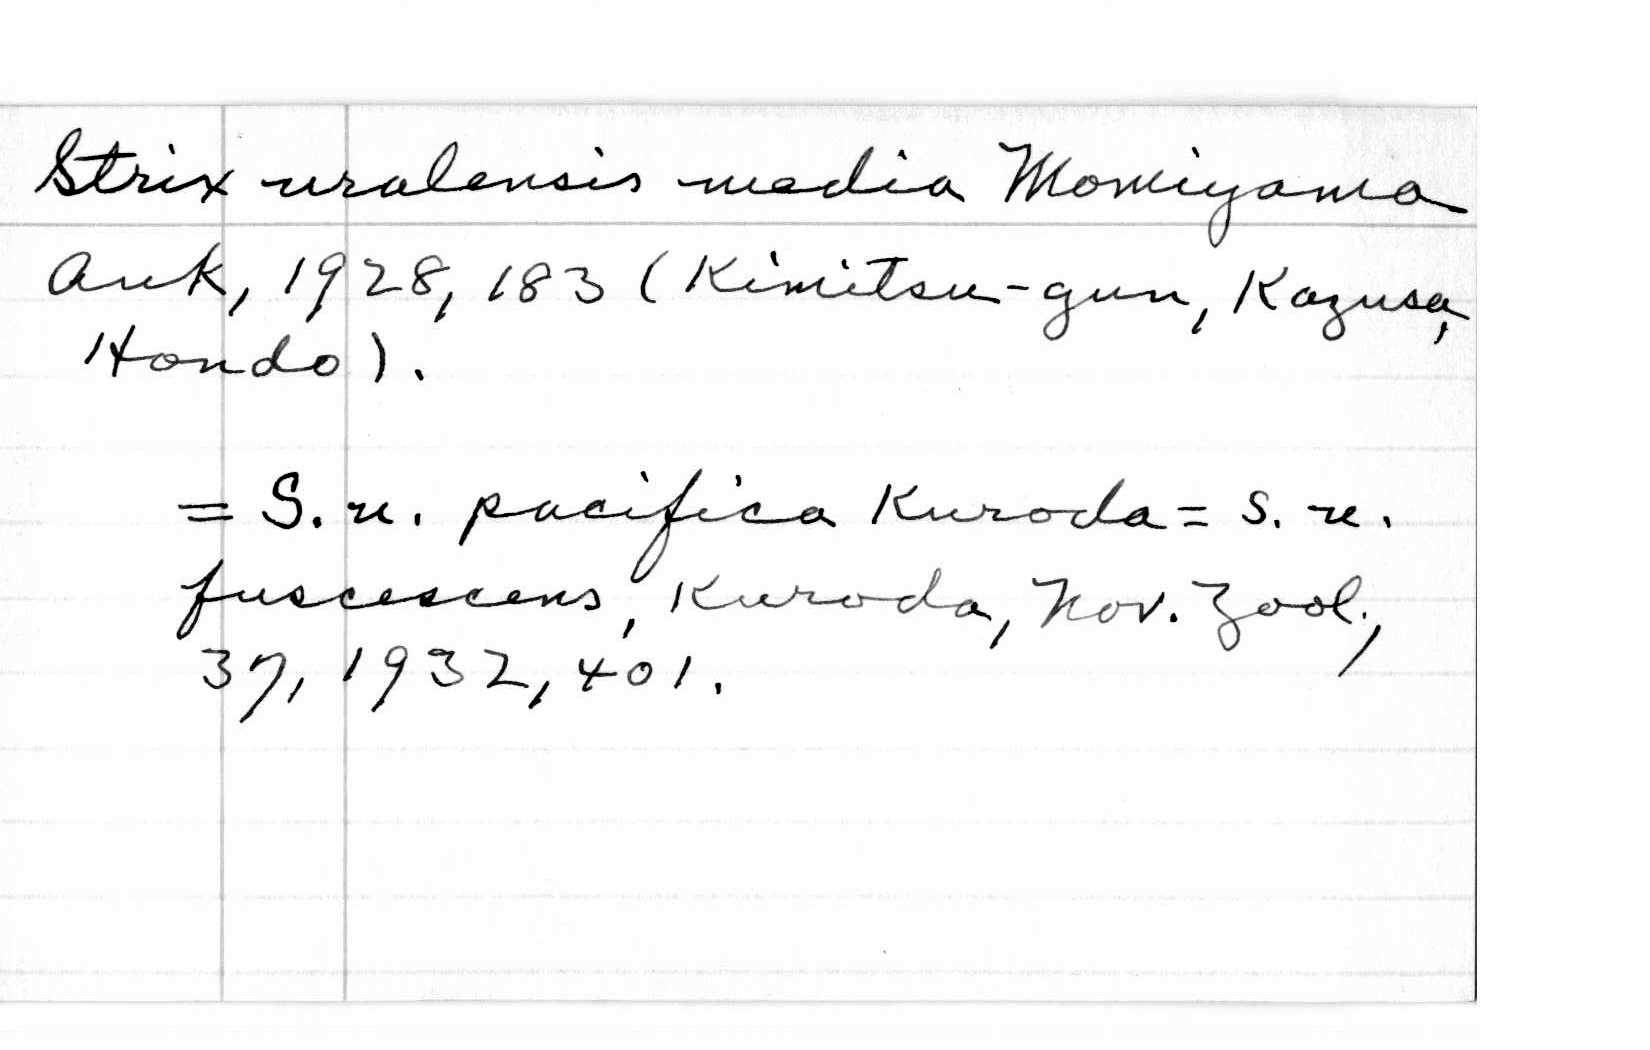 Strix uralensis media Momiyama
Auk, 1928, 183 (Kimitsu-gun, Kazusa,
Hondo).
= S. u. pacifica Kuroda = S. u.
fuscescens, Kuroda, Nov. Zool.,
37, 1932, 401.